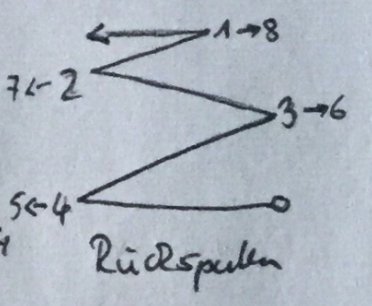 1→8
7←2
3→6
5←4
Rückspulen